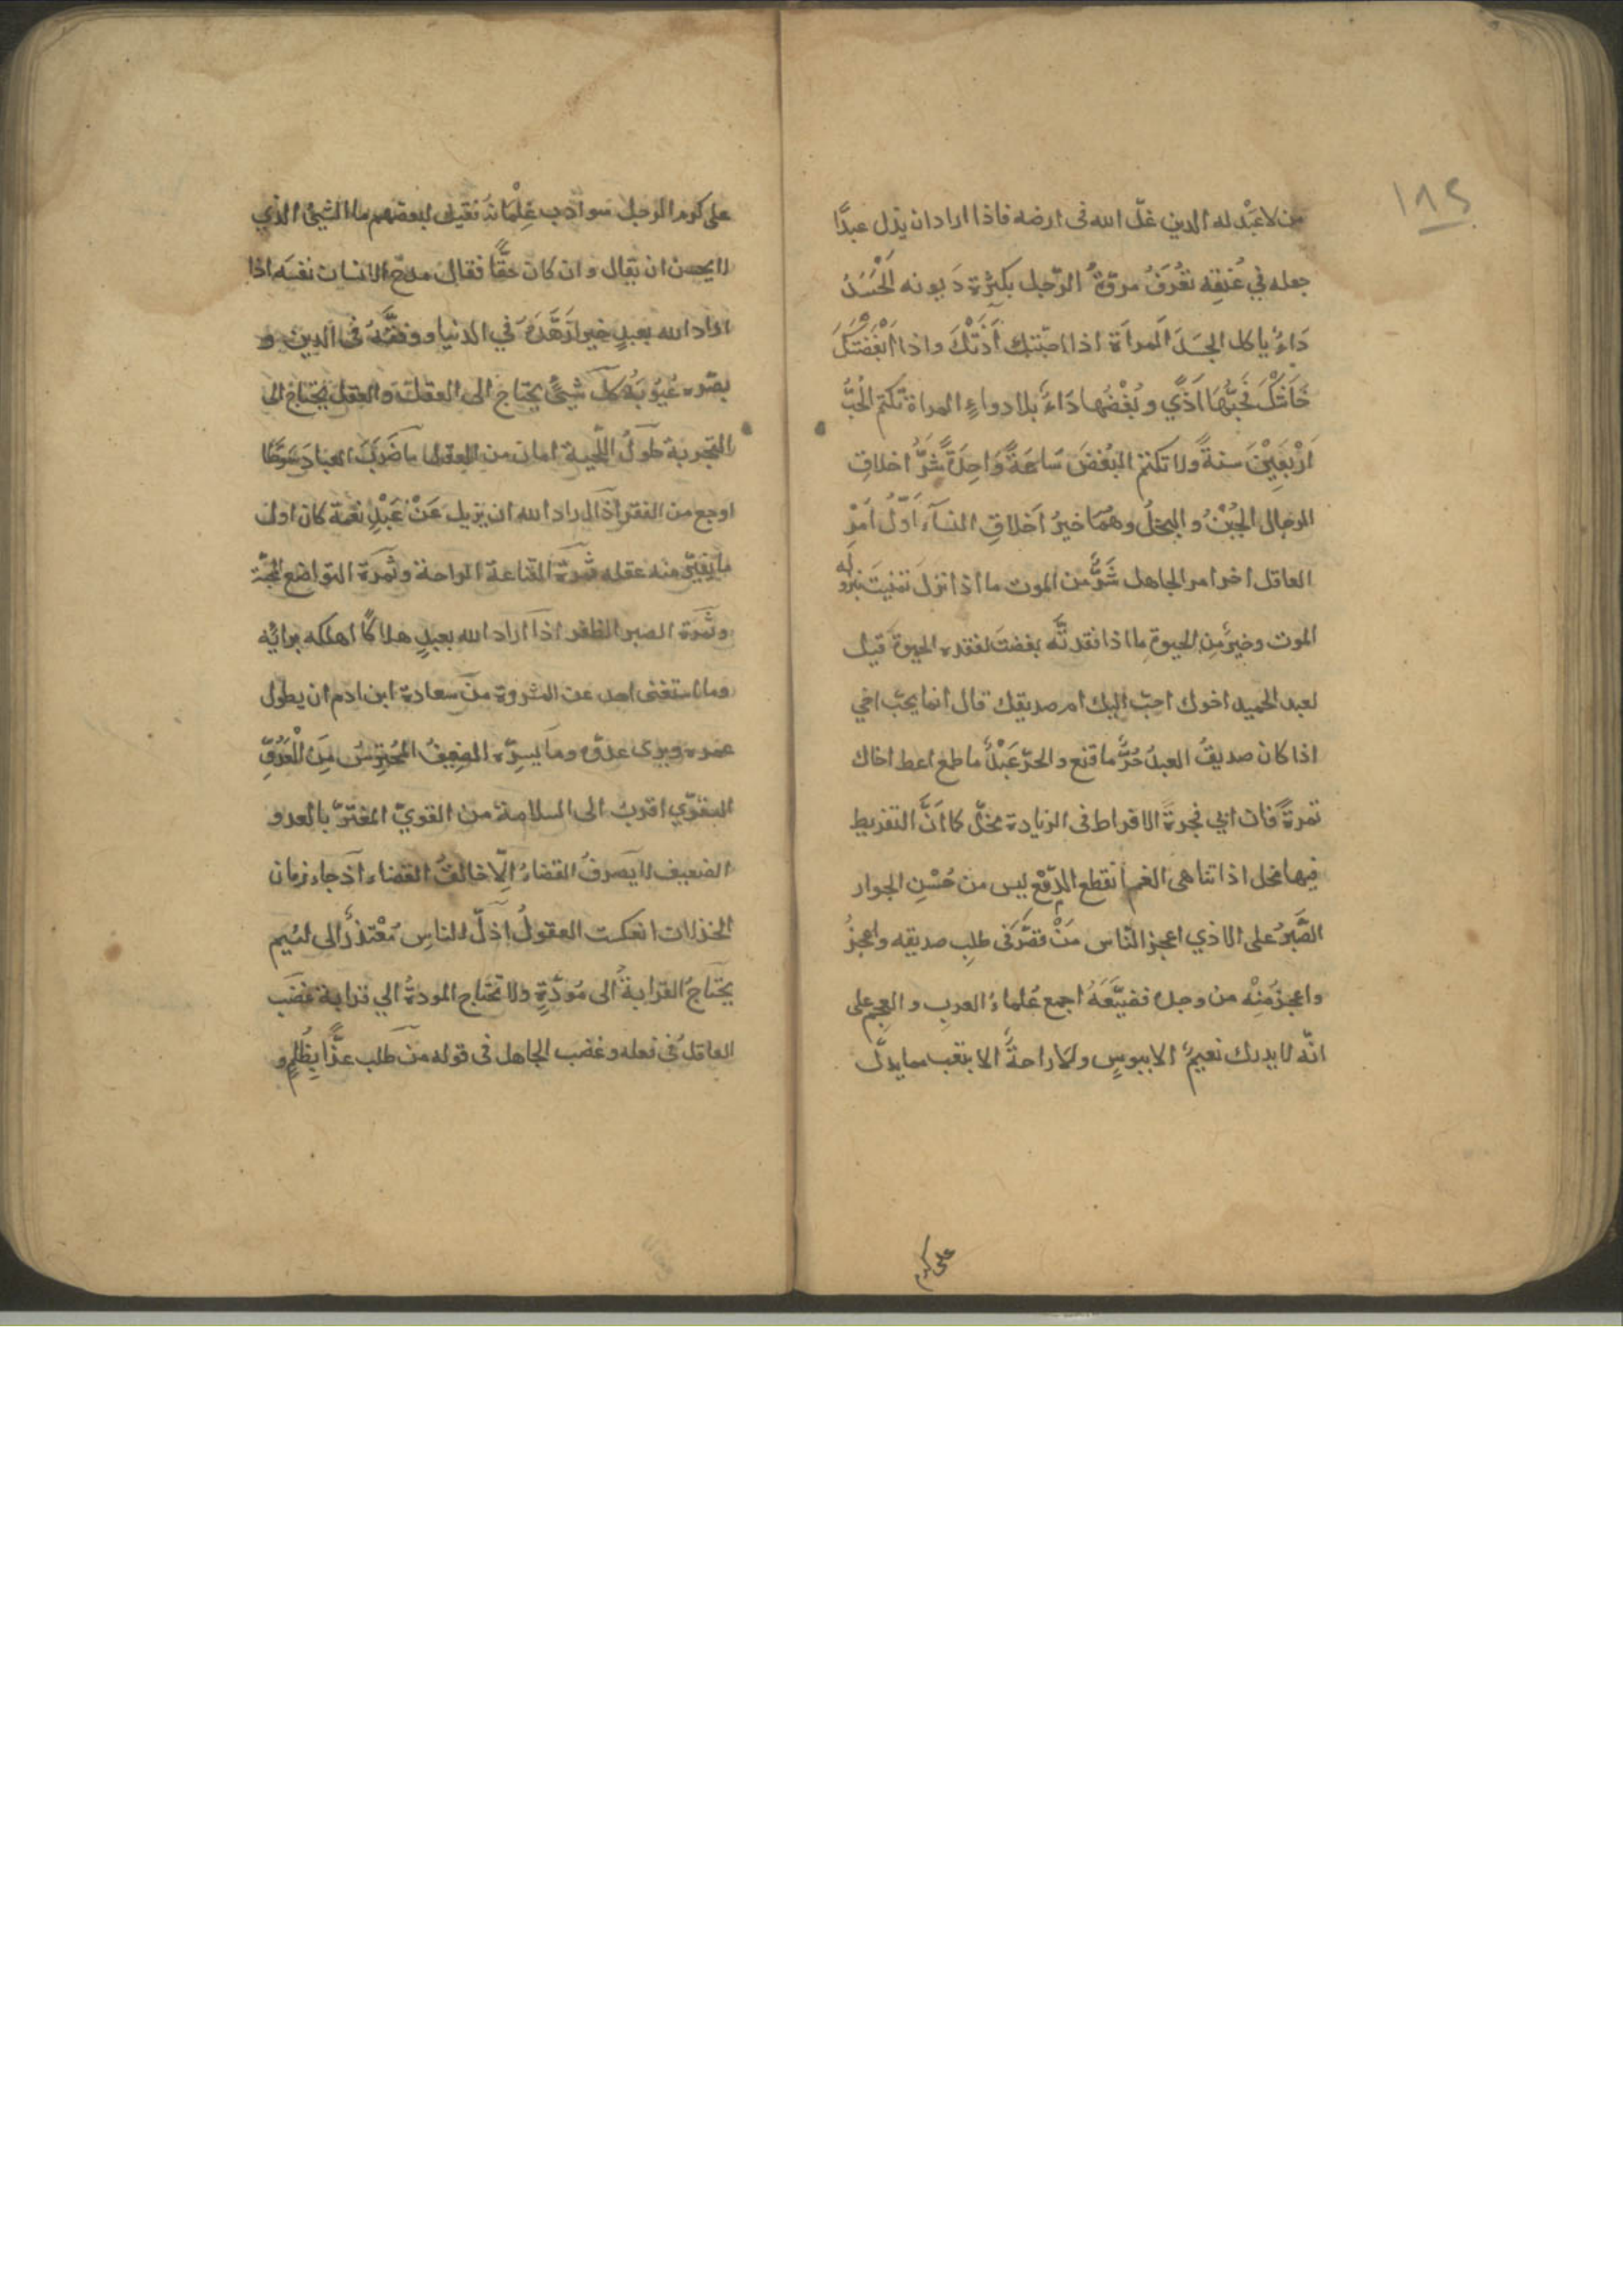 ١٨٢
من لا عَبْد له الدين غلّ الله فى ارضه فاذا اراد ان يذل عبدًا
جعله في عُنقِه تعُرَفُ مروّةُ الرّجل بكثرة دَيونه اَلْحَسَدُ
دَاءٌ ياكل الجسَدَ اَلمرأة اذا احبّتك آذَتْكَ واذا اَبْغَضَتْكَ
خَانَتْكَ فحُبّهَا اَذًي وبُغْضُها دَاءٌ بلا دواءٍ المراة تكتم الحُبَّ
اَرْبَعِيْنَ سنةً ولا تكتم البُغضَ سَاعَةً وَاحِدَةً شَرُّ اخلاقِ
الرجال الجُبْنُ والبخلُ وهُمَا خيرُ اَخلاقِ النسآء اَوّلُ اَمْرِ
العاقل اخر امر الجاهل شَرٌّ من الموت ما اذا نزلَ تمنيتَ بنزوله
الموت وخيرٌ مِن الحيوةِ ما اذا فقدتَّه بغضتَ لفقده الحيوة قيل
لعبد الحميد اخوك احبّ اليك ام صديقك قال انما يحبّ اخي
اذا كان صديقُ العبدُ حُرٌّ ما قنع والحرّ عَبْدٌ ما طمع اعط اخاك
تمرةً فان ابي فجمرةً الافراط فى الزيادة مخلّ كما اَنَّ التفريط
فيها مخل اذا تناهى الغم انقطع الدّمْع ليس من حُسْنِ الجوار
الصَّبرُ على الاذي اعجز النّاس مَنْ قصّرَ فى طلبِ صديقه واعجزُ
واعجزُ مِنْه من وجدَه فضيّعَهُ اجمع عُلماءُ العربِ والعجم على
انّه لا يدرك نعيمٌ الا ببوسٍ ولا راحةٌ الا بتعب مما يدلّ
على كرم
على كرم الرجل سو ادب غِلْمَانهُ فقيل لبعضهم ما الشيئ الذي
لا يحسن ان يقال وان كان حقًّا فقال مدح الانسان نفسَه اذا
اراد الله بعبدٍ خيرا زَهَّدَهُ في الدنيا وفقَّهَهُ فى الدين و
بصّره عُيُوبَهُ كلّ شيئٍ يحتاج الى العقل والعقل يحتاج الى
التجربة طولُ اللّحية امان من العقل ما ضَرَبَ العبادَ سَوطًا
اوجع من الفقر اذا اراد الله ان يزيل عَنْ عَبْدٍ نعمة كان اول
ما يُغيّر منه عقله ثمرة القناعة الراحة وثمرة التواضع المحبّة
وثمرة الصبر الظفر اذا اراد الله بعبدٍ هلاكًا اهلكه برائه
وما استغنى احد عن المشروة منْ سعادة ابن ادم ان يطول
عمره ويرى عدوّه وما يسرّه الضعيفُ المُحْترِسُ مِنَ الْعَدُوِّ
القوّي اقربُ الى السلامة من القويّ المغترّ بالعدو
الضعيف لا يَصرفُ القضاءَ اِلّا خالقُ القضاء اذ جاء زمان
الخذلان انعكست العقولُ اذلّ الناسِ مُعْتذرٌ الى لئيم
يحتاجُ القرابةُ الى مَودّةٍ ولا تحتاج المودةُ الي قرابة غضَب
العاقل فى فعله وغضب الجاهل فى قوله من طلب عزًّا بِظُلمٍ و